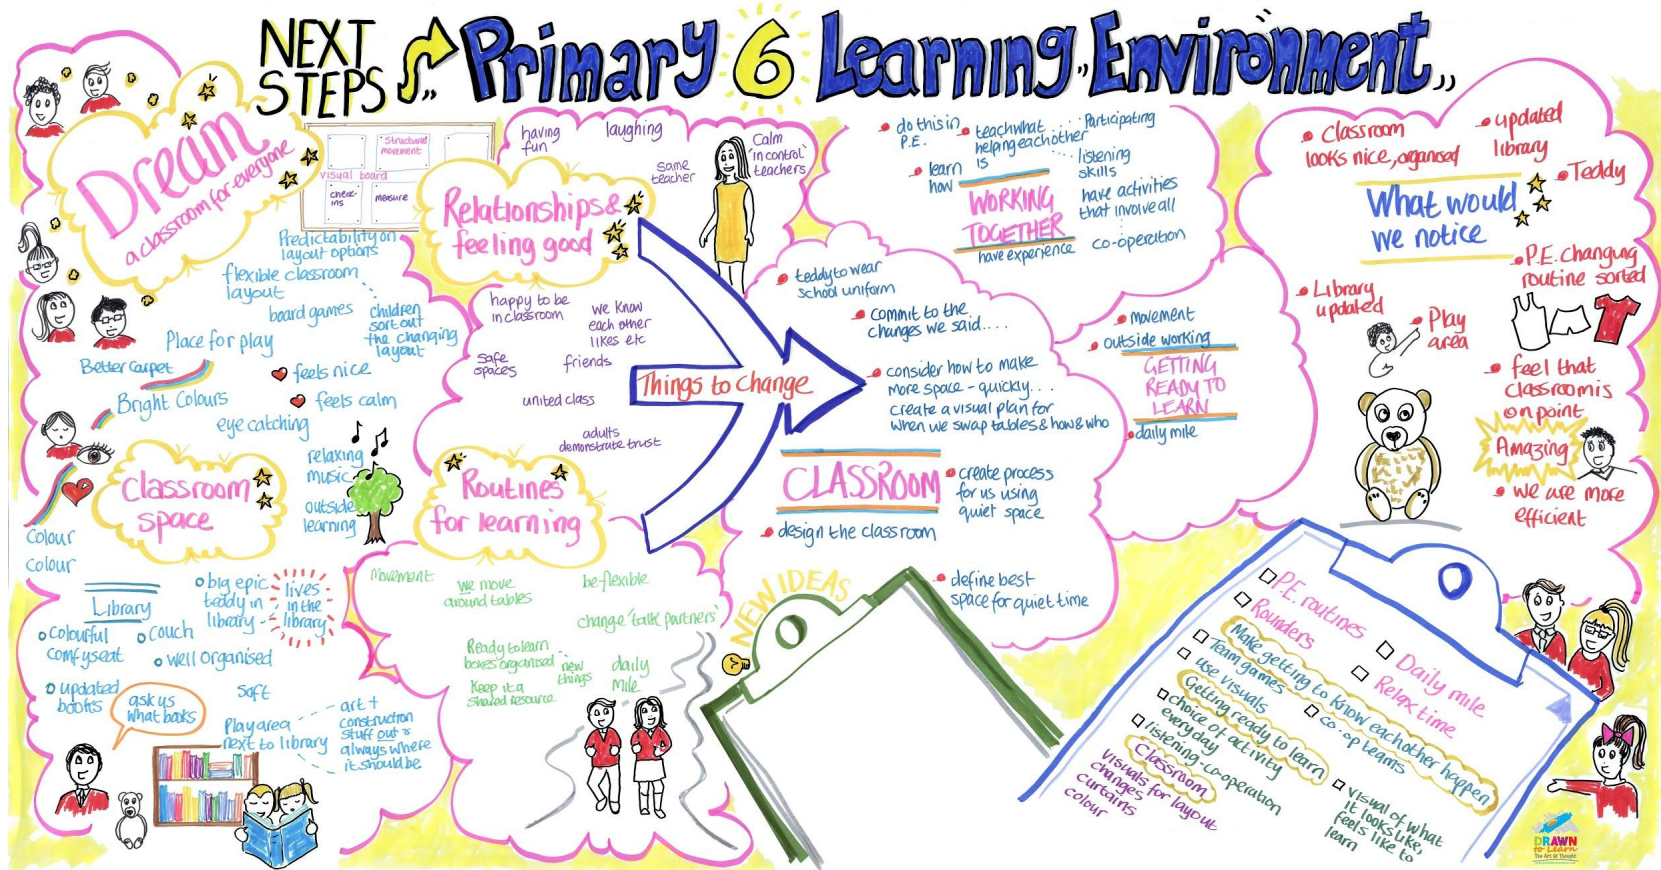 NEXT
STEPS
Primary 6 Learning Environment
Dream
a classroom for everyone
Structured
movement
visual board
check-
ins
measure
Predictability on
layout options
flexible classroom
layout
board games
children
sort out
the changing
layout
Place for play
Better Carpet
feels nice
Bright Colours
feels calm
eye catching
relaxing
music
outside
learning
Classroom
space
Colour
colour
Library
big epic
teddy in
library
lives
in the
library
colourful
comfy seat
couch
well organised
updated
books
ask us
what books
Soft
Play area
next to library
art +
construction
stuff out &
always where
it should be
Relationships &
feeling good
having
fun
laughing
same
teacher
Calm
'in control'
teachers
happy to be
in classroom
we know
each other
likes etc
safe
spaces
friends
united class
adults
demonstrate trust
Routines
for learning
Movement
we move
around tables
be flexible
change 'talk partners'
Ready to learn
boxes organised
new
things
daily
mile
Keep it a
shared resource
Things to Change
do this in
P.E.
teach what
helping each other
is
Participating
listening
skills
learn
how
WORKING
TOGETHER
have activities
that involve all
have experience
co-operation
teddy to wear
school uniform
commit to the
changes we said....
consider how to make
more space - quickly...
create a visual plan for
when we swap tables & how & who
CLASSROOM
create process
for us using
quiet space
design the classroom
define best
space for quiet time
movement
outside working
GETTING
READY TO
LEARN
daily mile
Classroom
looks nice, organised
updated
library
Teddy
What would
we notice
P.E. Changing
routine sorted
Library
updated
Play
area
feel that
classroom is
on point
Amazing
we are more
efficient
NEW IDEAS
P.E. routines
Rounders
Daily mile
Relax time
Make getting to know each other happen
Team games
co-op teams
use visuals
Getting ready to learn
choice of activity
everyday
listening · co-operation
visual of what
it looks like,
feels like to
learn
Classroom
visuals for layout
changes
curtains
colour
DRAWN
to Learn
The Art Of Thought